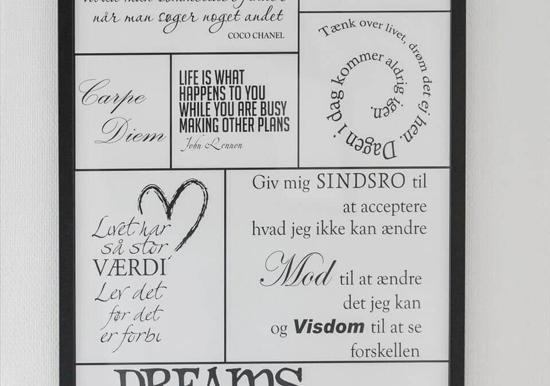 når man søger noget andet
COCO CHANEL
Carpe
Diem
LIFE IS WHAT
HAPPENS TO YOU
WHILE YOU ARE BUSY
MAKING OTHER PLANS
John Lennon
Tænk over livet, drøm det ej hen. Dagen i dag kommer aldrig igen.
Livet har
så stor
VÆRDI
Lev det
før det
er forbi
Giv mig SINDSRO til
at acceptere
hvad jeg ikke kan ændre
Mod til at ændre
det jeg kan
og Visdom til at se
forskellen
DREAMS